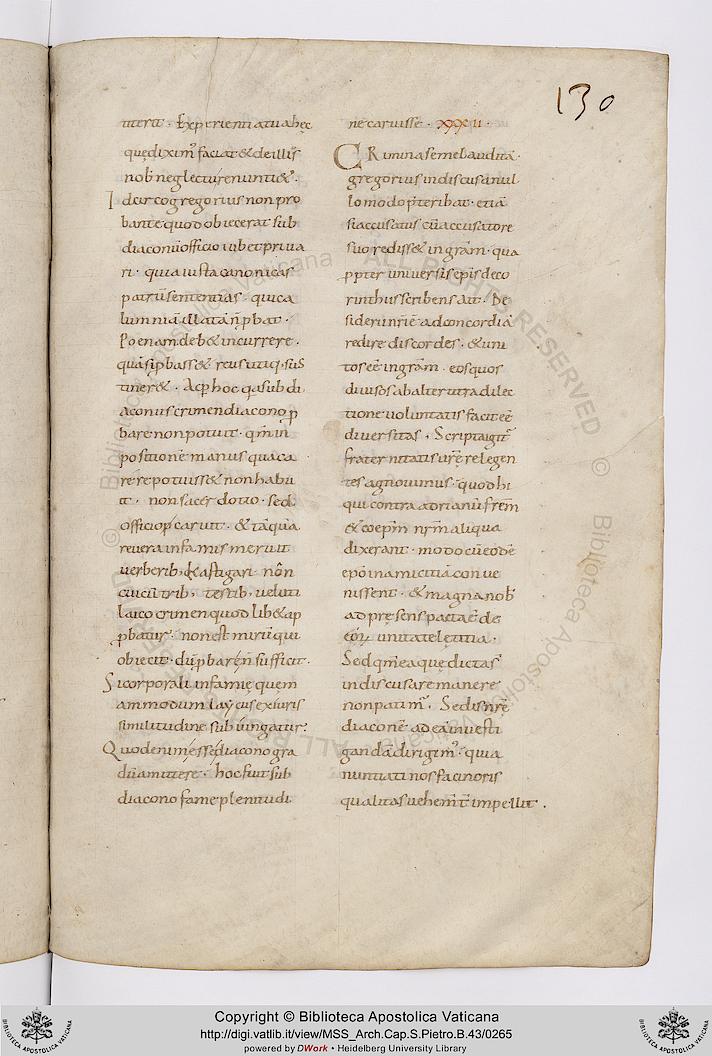 130
titerit. Experientia tua hęc
quę diximꝰ faciat & de illis
nobꝭ neglectu renunti&.
Idcirco gregorius non pro
bante quod obiecerat sub
diaconū officio iub& priva
ri. quia iusta canonicas
patrū sententias. qui ca
lumniā illatā n̄ p̱bat.
Poenam deb& incurrere.
quā si p̱bass& reus utiq; sus
tiner&. Ac p̱ hoc q̄a subdi
aconus crimen diacono p̱
bare non potuit. qm̄ in
positionē manus qua ca
rere potuiss& non habu
it. non sacerdotio. sed
officio caruit. & tāquā
revera infamis meruit
verberibꝰ castigari. nōn
civiū tribꝰ, testibꝰ, veluti
laico crimen quod lib& ap
p̱batur. non est mirū qui
obiecit. dū p̱bare n̄ sufficit.
Si corporali infamię quem
ammodum laycus exiuris
similitudine subiungatur?
Quod enim esse diacono gra
dū amittere. hoc fuit sub
diacono famę plenitudi
ne caruisse. XXXII.
Crimina semel audita
gregorius indiscussa nul
lo modo p̱teribat. etiā
si accusatus cū accusatore
suo rediss& in grām. qua
p̱pter universis ep̄is de co
rinthus scribens ait. De
siderii nr̄i ē ad concordiā
redire discordes. & uni
tos eē in grām. eos quos
divisos ab alterutra dilec
tione voluntatis facit eē
diversitas. Scripta igit̄
fraternitatis vr̄ę relegen
tes agnovimus. quod hi
qui contra adrianū fr̄em
& coepm̄ nr̄m aliqua
dixerant. modo cū eodē
epō in amicitiā conve
nissent. & magna nobꝭ
ad pręsens facta ē de
eoꝝ unitate lętitia.
Sed qm̄ ea quę dicta s̄
indiscussa remanere
non patimꝰ. Sed is nr̄ę
diaconē ad ea investi
ganda dirigimꝰ. quia
nuntiati nos facinoris
qualitas vehem̄t̄ impellit.
Copyright © Biblioteca Apostolica Vaticana
http://digi.vatlib.it/view/MSS_Arch.Cap.S.Pietro.B.43/0265
powered by DWork • Heidelberg University Library